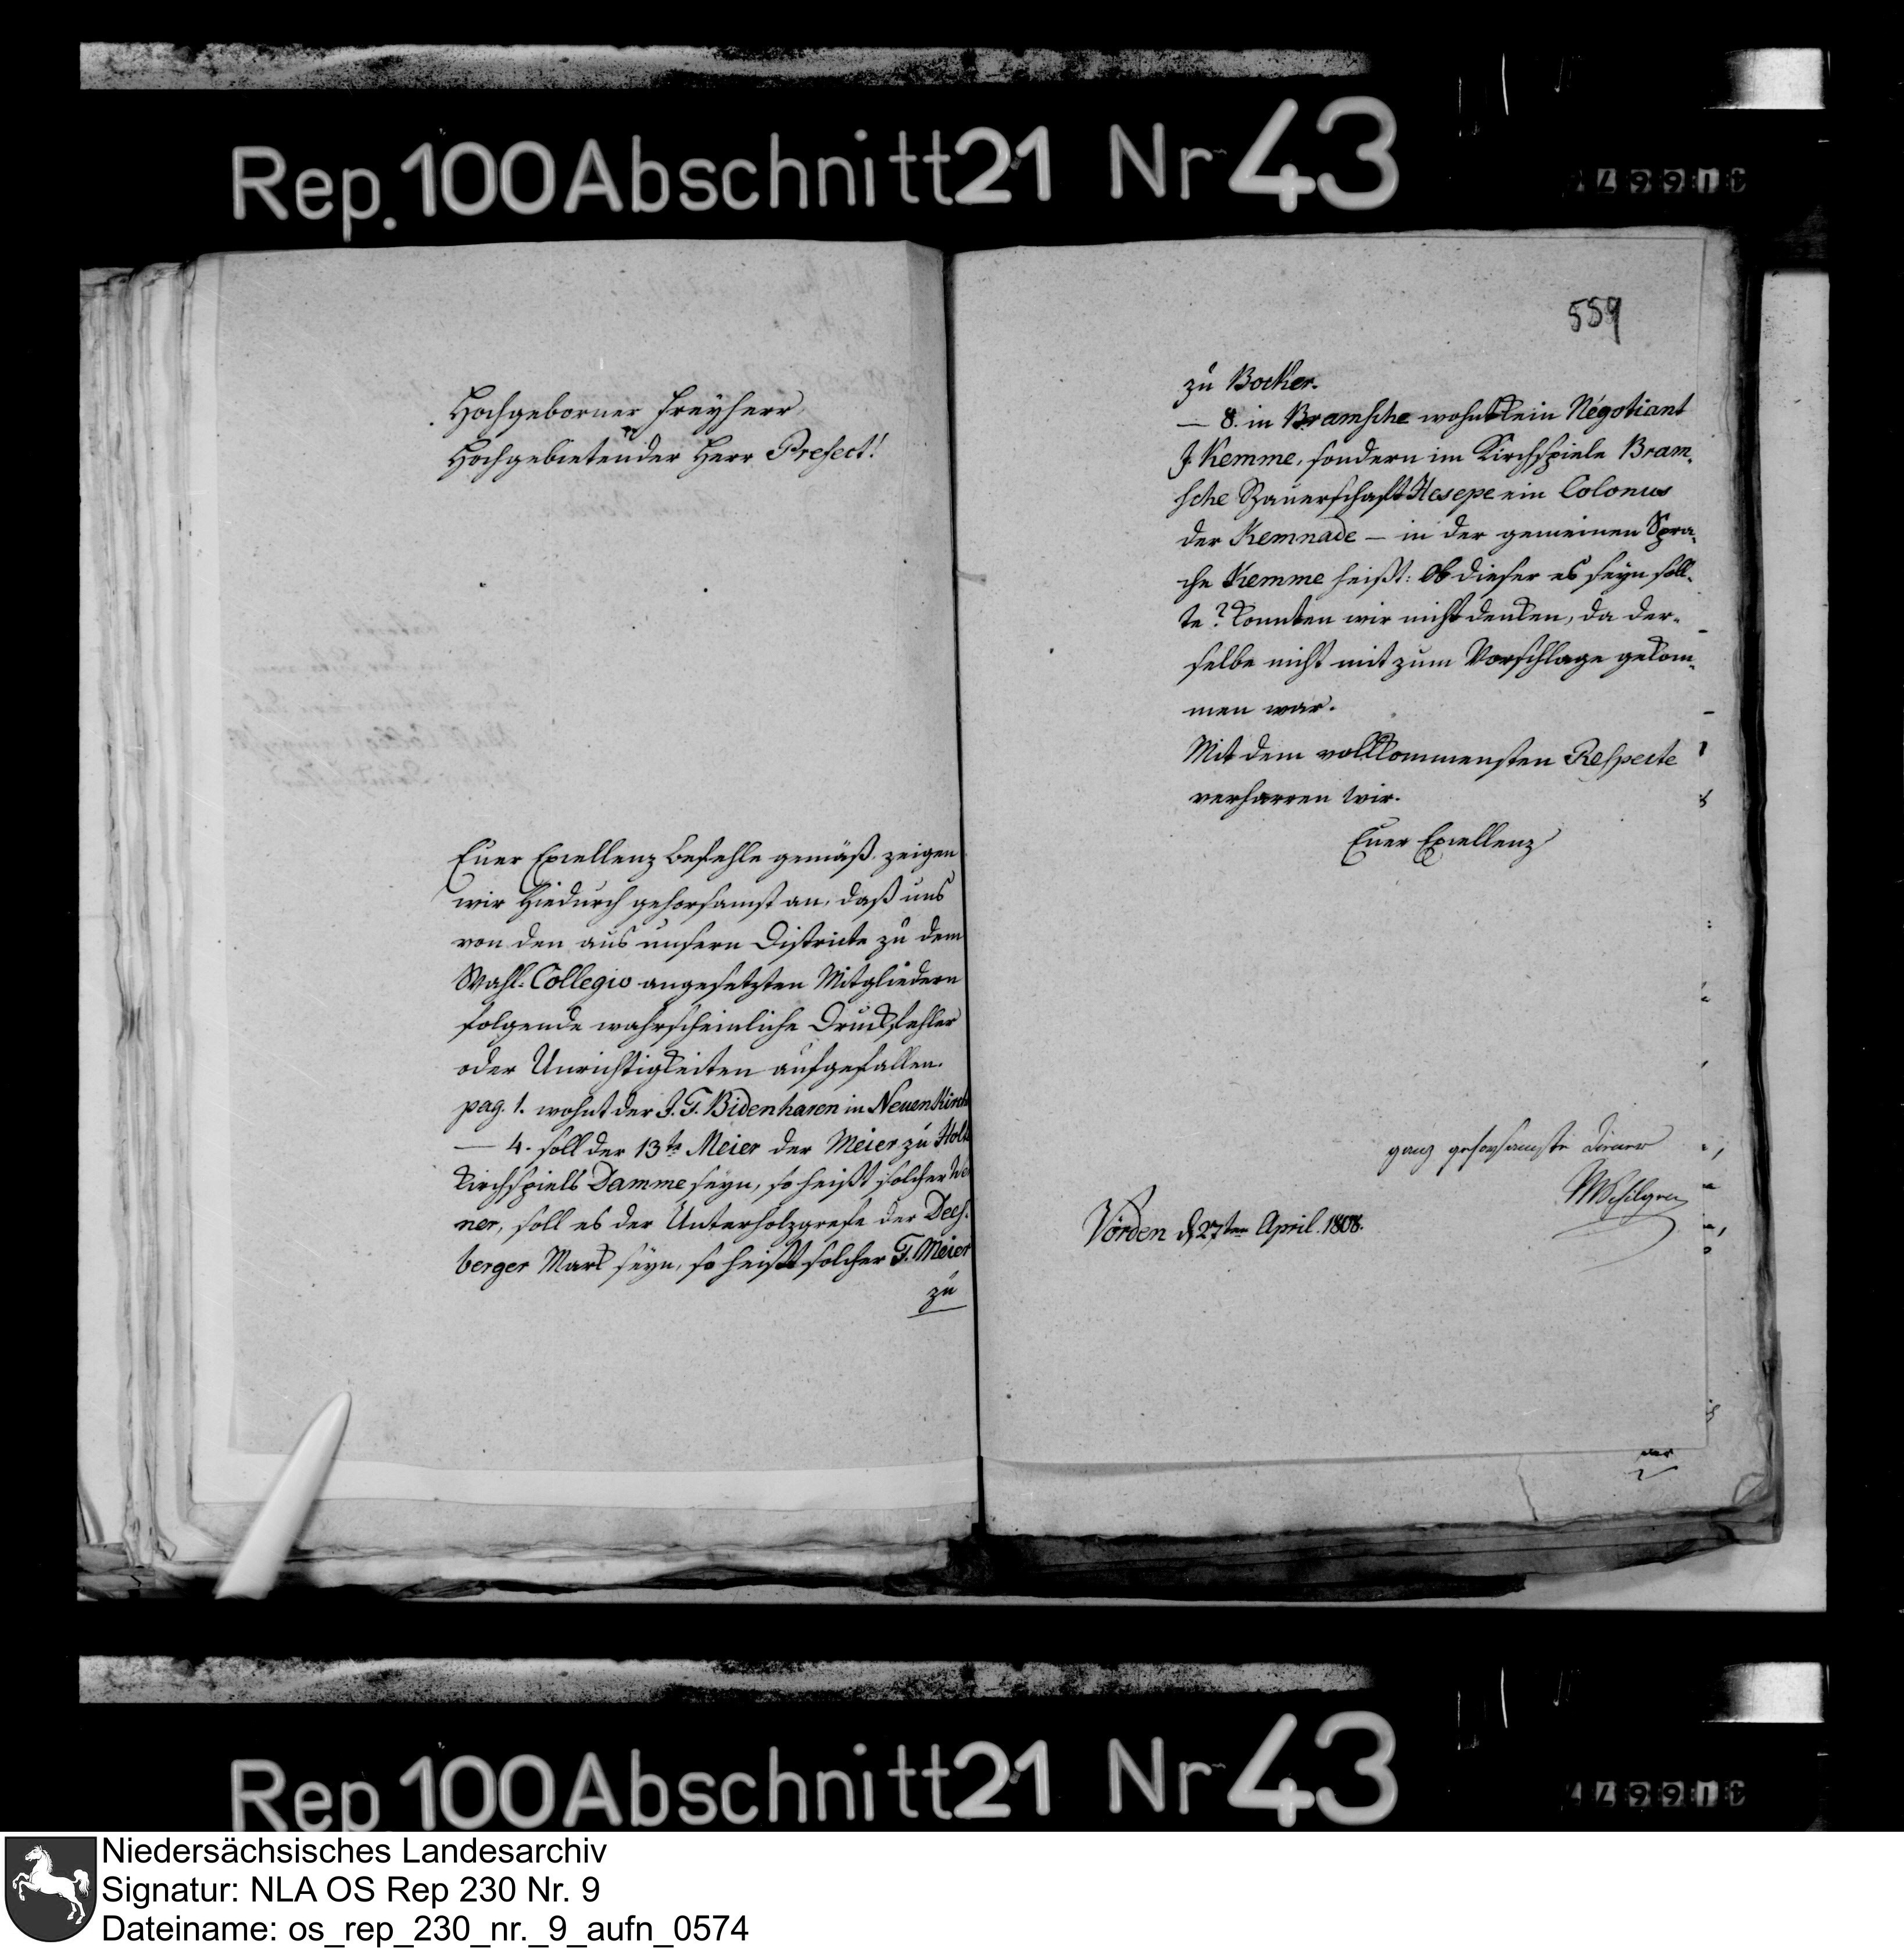 Rep. 100 Abschnitt 21 Nr 43
Hochgeborner Freyherr,
Hochgebietender Herr Prefect!
Euer Excellenz Befehle gemäß, zeigen
wir hiedurch gehorsamst an, daß uns
von den aus unsern Districte zu dem
Wahl-Collegio angesetzten Mitgliedern
folgende wahrscheinliche Druckfehler
oder Unrichtigkeiten aufgefallen.
pag. 1. wohnt der J. F. Bidenharen in Neuenkirch
— 4. soll der 13te Meier der Meier zu Holte
Kirchspiels Damme seyn, so heißt solcher
ner, soll es der Unterholzgrefe der
berger Mark seyn, so heißt solcher F. Meier
zu
559
zu Bocker.
— 8. in Bramsche wohnt kein Négotiant
J. Kemme, sondern im Kirchspiele Bram-
sche Bauerschaft Hesepe ein Colonus
der Kemnade — in der gemeinen Spra-
che Kemme heißt: Ob dieser es seyn soll-
te? konnten wir nicht denken, da der-
selbe nicht mit zum Vorschlage gekom-
men war.
Mit dem vollkommensten Respecte
verharren wir.
Euer Excellenz
ganz gehorsamste Diener
Vörden d 27ten April. 1808.
Rep 100 Abschnitt 21 Nr 43
Niedersächsisches Landesarchiv
Signatur: NLA OS Rep 230 Nr. 9
Dateiname: os_rep_230_nr._9_aufn_0574